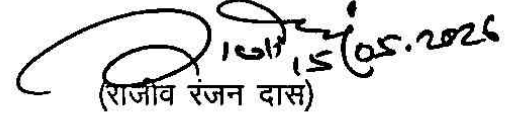 15/05.2026
(राजीव रंजन दास)